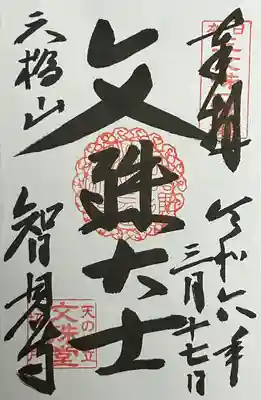 奉拝
令和六年
三月十七日
文殊大士
天橋山
智恩寺
文珠堂